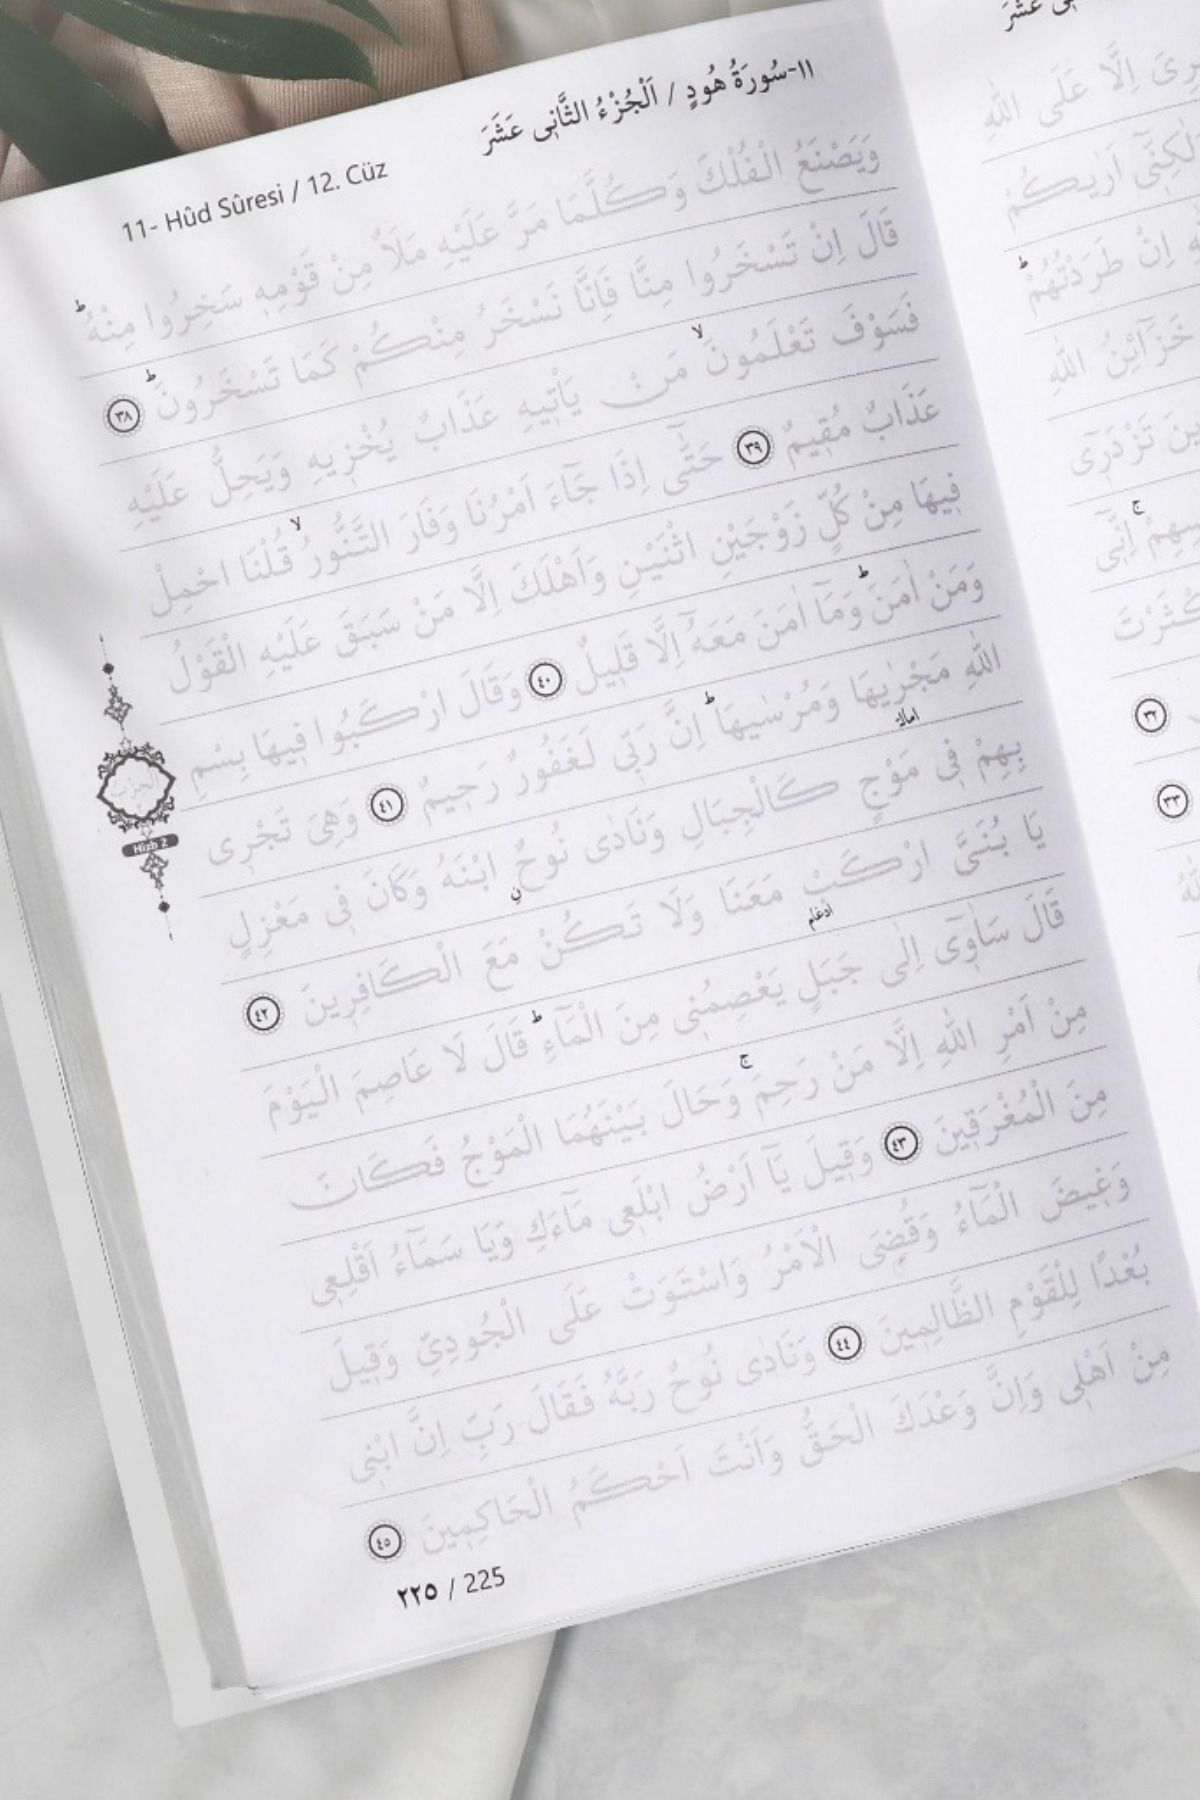 ١١-سُورَةُ هُودٍ / اَلْجُزْءُ الثَّانِى عَشَرَ
11- Hûd Sûresi / 12. Cüz
وَيَصْنَعُ الْفُلْكَ وَكُلَّمَا مَرَّ عَلَيْهِ مَلَاٌ مِنْ قَوْمِه۪ سَخِرُوا مِنْهُۜ
قَالَ اِنْ تَسْخَرُوا مِنَّا فَاِنَّا نَسْخَرُ مِنْكُمْ كَمَا تَسْخَرُونَۜ ٣٨
فَسَوْفَ تَعْلَمُونَۙ مَنْ يَأْت۪يهِ عَذَابٌ يُخْز۪يهِ وَيَحِلُّ عَلَيْهِ
عَذَابٌ مُق۪يمٌ ٣٩ حَتّٰٓى اِذَا جَٓاءَ اَمْرُنَا وَفَارَ التَّنُّورُۙ قُلْنَا احْمِلْ
ف۪يهَا مِنْ كُلٍّ زَوْجَيْنِ اثْنَيْنِ وَاَهْلَكَ اِلَّا مَنْ سَبَقَ عَلَيْهِ الْقَوْلُ
وَمَنْ اٰمَنَۜ وَمَٓا اٰمَنَ مَعَهُٓ اِلَّا قَل۪يلٌ ٤٠ وَقَالَ ارْكَبُوا ف۪يهَا بِسْمِ
اللّٰهِ مَجْرٰۭيهَا وَمُرْسٰيهَاۜ اِنَّ رَبّ۪ي لَغَفُورٌ رَح۪يمٌ ٤١ وَهِىَ تَجْر۪ى
امالە
بِهِمْ ف۪ى مَوْجٍ كَالْجِبَالِ وَنَادٰى نُوحٌۨ ابْنَهُ وَكَانَ ف۪ى مَعْزِلٍ
يَا بُنَىَّ ارْكَبْ مَعَنَا وَلَا تَكُنْ مَعَ الْكَافِر۪ينَ ٤٢
ادغام
قَالَ سَاٰو۪ٓى اِلٰى جَبَلٍ يَعْصِمُن۪ى مِنَ الْمَٓاءِۜ قَالَ لَا عَاصِمَ الْيَوْمَ
مِنْ اَمْرِ اللّٰهِ اِلَّا مَنْ رَحِمَۚ وَحَالَ بَيْنَهُمَا الْمَوْجُ فَكَانَ
مِنَ الْمُغْرَق۪ينَ ٤٣ وَق۪يلَ يَٓا اَرْضُ ابْلَع۪ى مَٓاءَكِ وَيَا سَمَٓاءُ اَقْلِع۪ى
وَغ۪يضَ الْمَٓاءُ وَقُضِىَ الْاَمْرُ وَاسْتَوَتْ عَلَى الْجُودِىِّ وَق۪يلَ
بُعْدًا لِلْقَوْمِ الظَّالِم۪ينَ ٤٤ وَنَادٰى نُوحٌ رَبَّهُ فَقَالَ رَبِّ اِنَّ ابْن۪ى
مِنْ اَهْل۪ى وَاِنَّ وَعْدَكَ الْحَقُّ وَاَنْتَ اَحْكَمُ الْحَاكِم۪ينَ ٤٥
٢٢٥ / 225
Hizb 2
عَشَرَ
اِلَّا عَلَى اللّٰهِ
اَرٰيكُمْ
اِنْ طَرَدْتُهُمْۜ
خَزَٓائِنُ اللّٰهِ
تَزْدَر۪ٓى
اِنّ۪ٓى
٣٢
٣٣